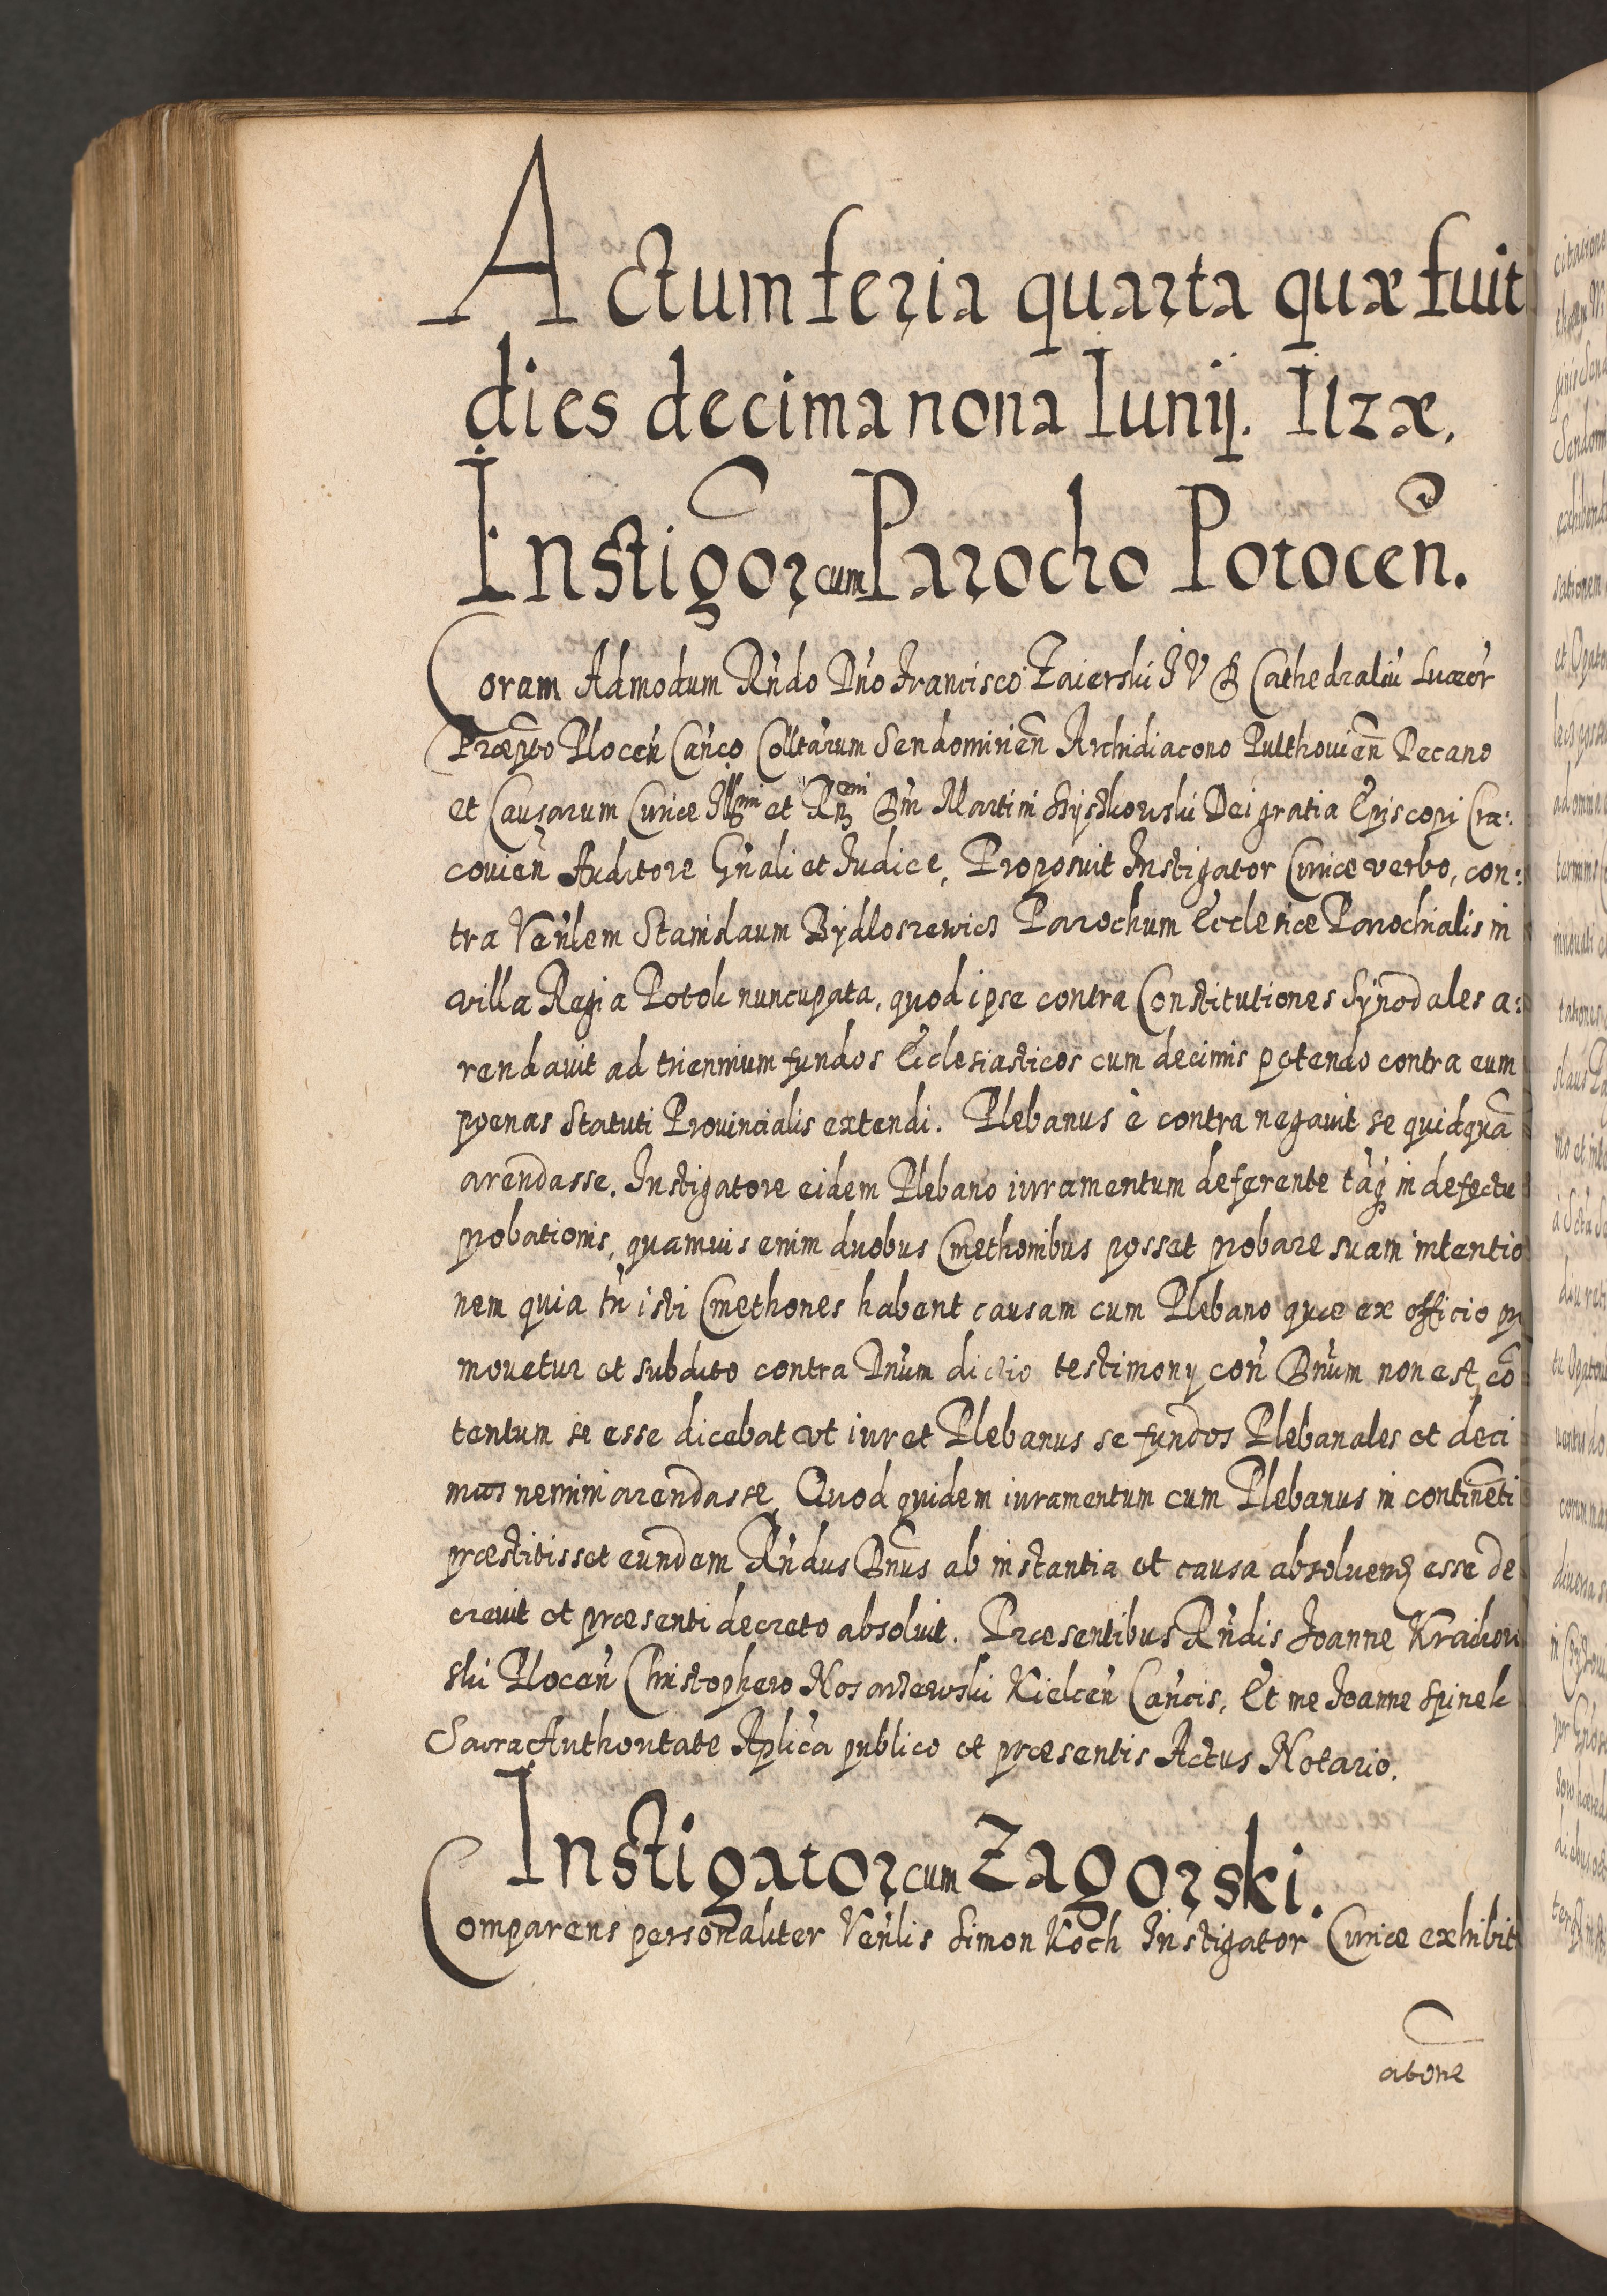 Actum feria quarta quæ fuit
dies decima nona Iunij. Ilzæ.
Instigor cum Parocho Potocen̄.
Coram Admodum Rn̄do Dn̄o Francisco Zaierski I V D Cathedraliū Luceor
Præpto Plocen̄ Can̄co Colltarum Sendomirien̄ Archidiacono Pulthovien̄ Decano
et Causarum Curiæ Illmi et Rndmi Dn̄i Martini Szyszkowski Dei gratia Episcopi Cra:
covien̄ Auditore Gn̄ali et Iudice, Proposuit Instigator Curiæ verbo, con:
tra Ven̄lem Stanislaum Bydloszewicz Parochum Ecclesiæ Parochialis in
villa Regia Potok nuncupata, quod ipse contra Constitutiones Synodales a:
rendavit ad triennium fundos Ecclesiasticos cum decimis petendo contra eum
poenas Statuti Provincialis extendi. Plebanus è contra negavit se quidquā
arendasse. Instigatore eidem Plebano iurramentum deferente tāq in defectu
probationis, quamvis enim duobus Cmethonibus posset probare suam intentio
nem quia tn̄ isti Cmethones habent causam cum Plebano quæ ex officio p
movetur et subdito contra Dn̄um dictio testimony con̄ Dn̄um non est, cō
tentum se esse dicebat vt iuret Plebanus se fundos Plebanales et deci
mas nemini arendasse, Quod quidem iuramentum cum Plebanus in continēti
præstitisset eundem Rn̄dus Dn̄us ab instantia et causa absoluend esse de
crevit et præsenti decreto absoluit. Præsentibus Rn̄dis Joanne Krakow
ski Plocen̄ Christophero Nosarzewski Kielcen̄ Can̄cis, Et me Joanne Spinek
Sacra Authoritate Aplicā publico et præsentis Actus Notario.
Instigator cum Zagorski.
Comparens personaliter Ven̄lis Simon Koch Instigator Curiæ exhibit